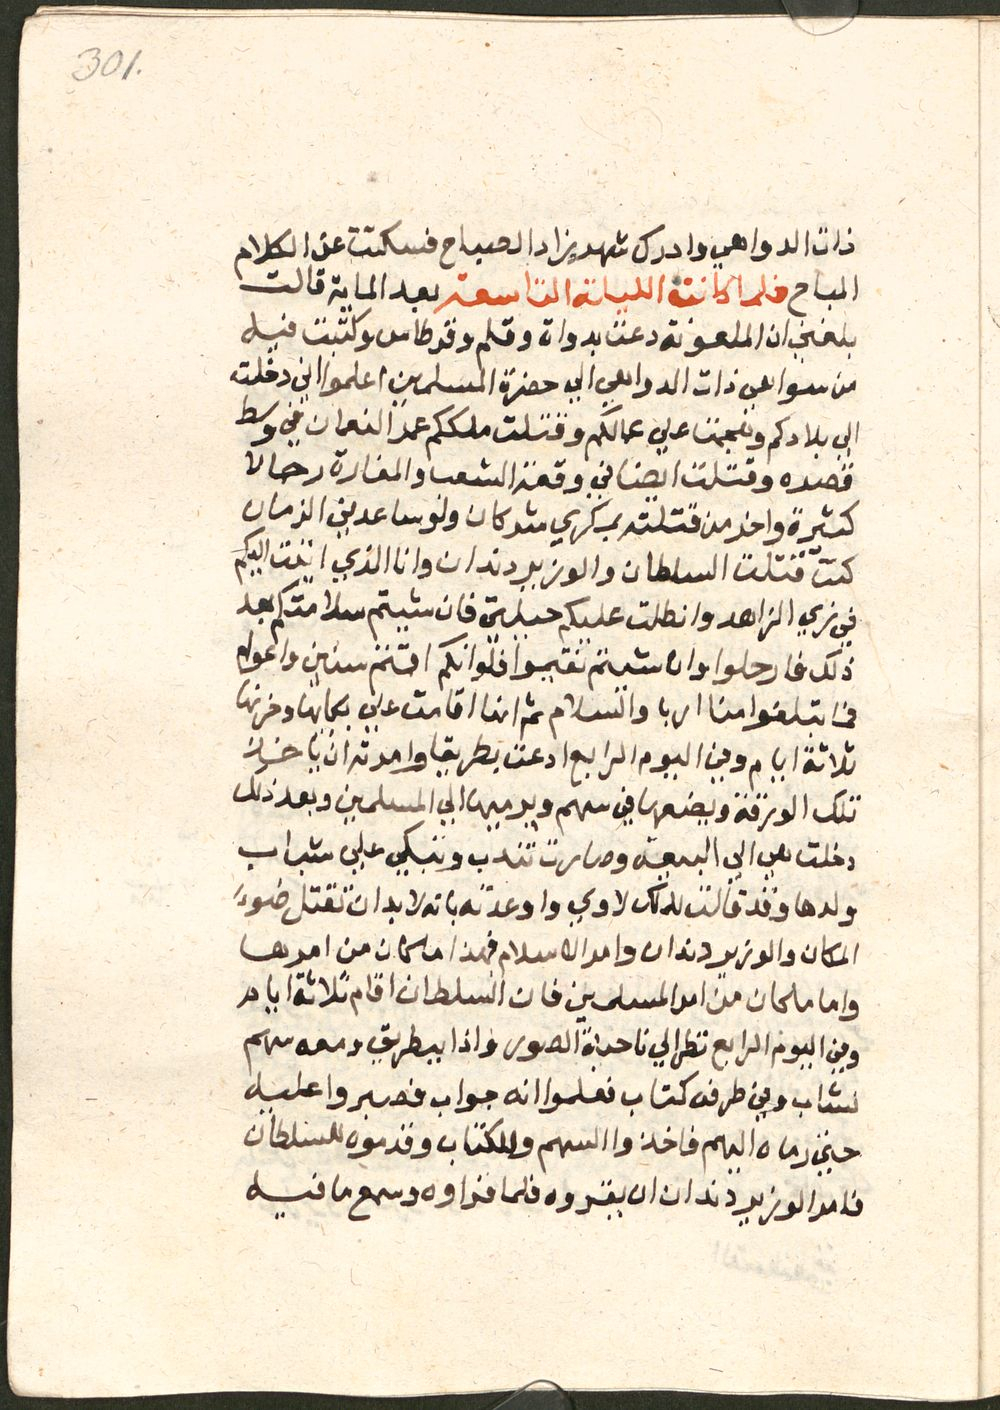 301.
ذات الدواهي وادرك شهرزاد الصباح فسكتت عن الكلام
المباح فلما كانت الليلة التاسعة بعد الماية قالت
بلغني ان الملعونة دعت بدواة وقلم وقرطاس وكتبت فيه
من سواهي ذات الدواهي الي حضرة المسلمين اعلموا اني دخلت
الي بلادكم وتلجمت علي عمالكم وقتلت ملككم عمر النعمان في وسط
قصره وقتلت ايضا في وقعة الشعب والمغارة رجالا
كثيرة واخر من قتلته بمكري شركان ولو ساعدني الزمان
كنت قتلت السلطان والوزير دندان وانا الذي اتيت اليكم
في زي الزاهد وانطلت عليكم حيلتي فان شيتم سلامتكم بعد
ذلك فارحلوا وان شيتم تقيموا فلو انكم اقمتم سنين واعوام
فما تبلغوا منا اربا والسلام ثم انها اقامت علي بكاها وحزنها
ثلاثة ايام وفي اليوم الرابع ادعت بطريقا وامرته ان ياخذ
تلك الورقة ويضعها في سهم ويرميها الي المسلمين وبعد ذلك
دخلت هي الي البيعة وصارت تندب وتبكي علي شباب
ولدها وقد قالت للملك لاوي واوعدته بانه لابد ان تقتل ضوء
المكان والوزير دندان وامرا الاسلام فهذا ما كان من امرها
واما ما كان من امر المسلمين فان السلطان اقام ثلاثة ايام
وفي اليوم الرابع نظر الي ناحية الصور واذا ببطريق ومعه سهم
نشاب وفي طرفه كتاب فعلموا انه جواب فصبروا عليه
حتي رماه اليهم فاخذوا السهم والكتاب وقدموه للسلطان
فامر الوزير دندان ان يقروه فلما قراوه وسمع ما فيه